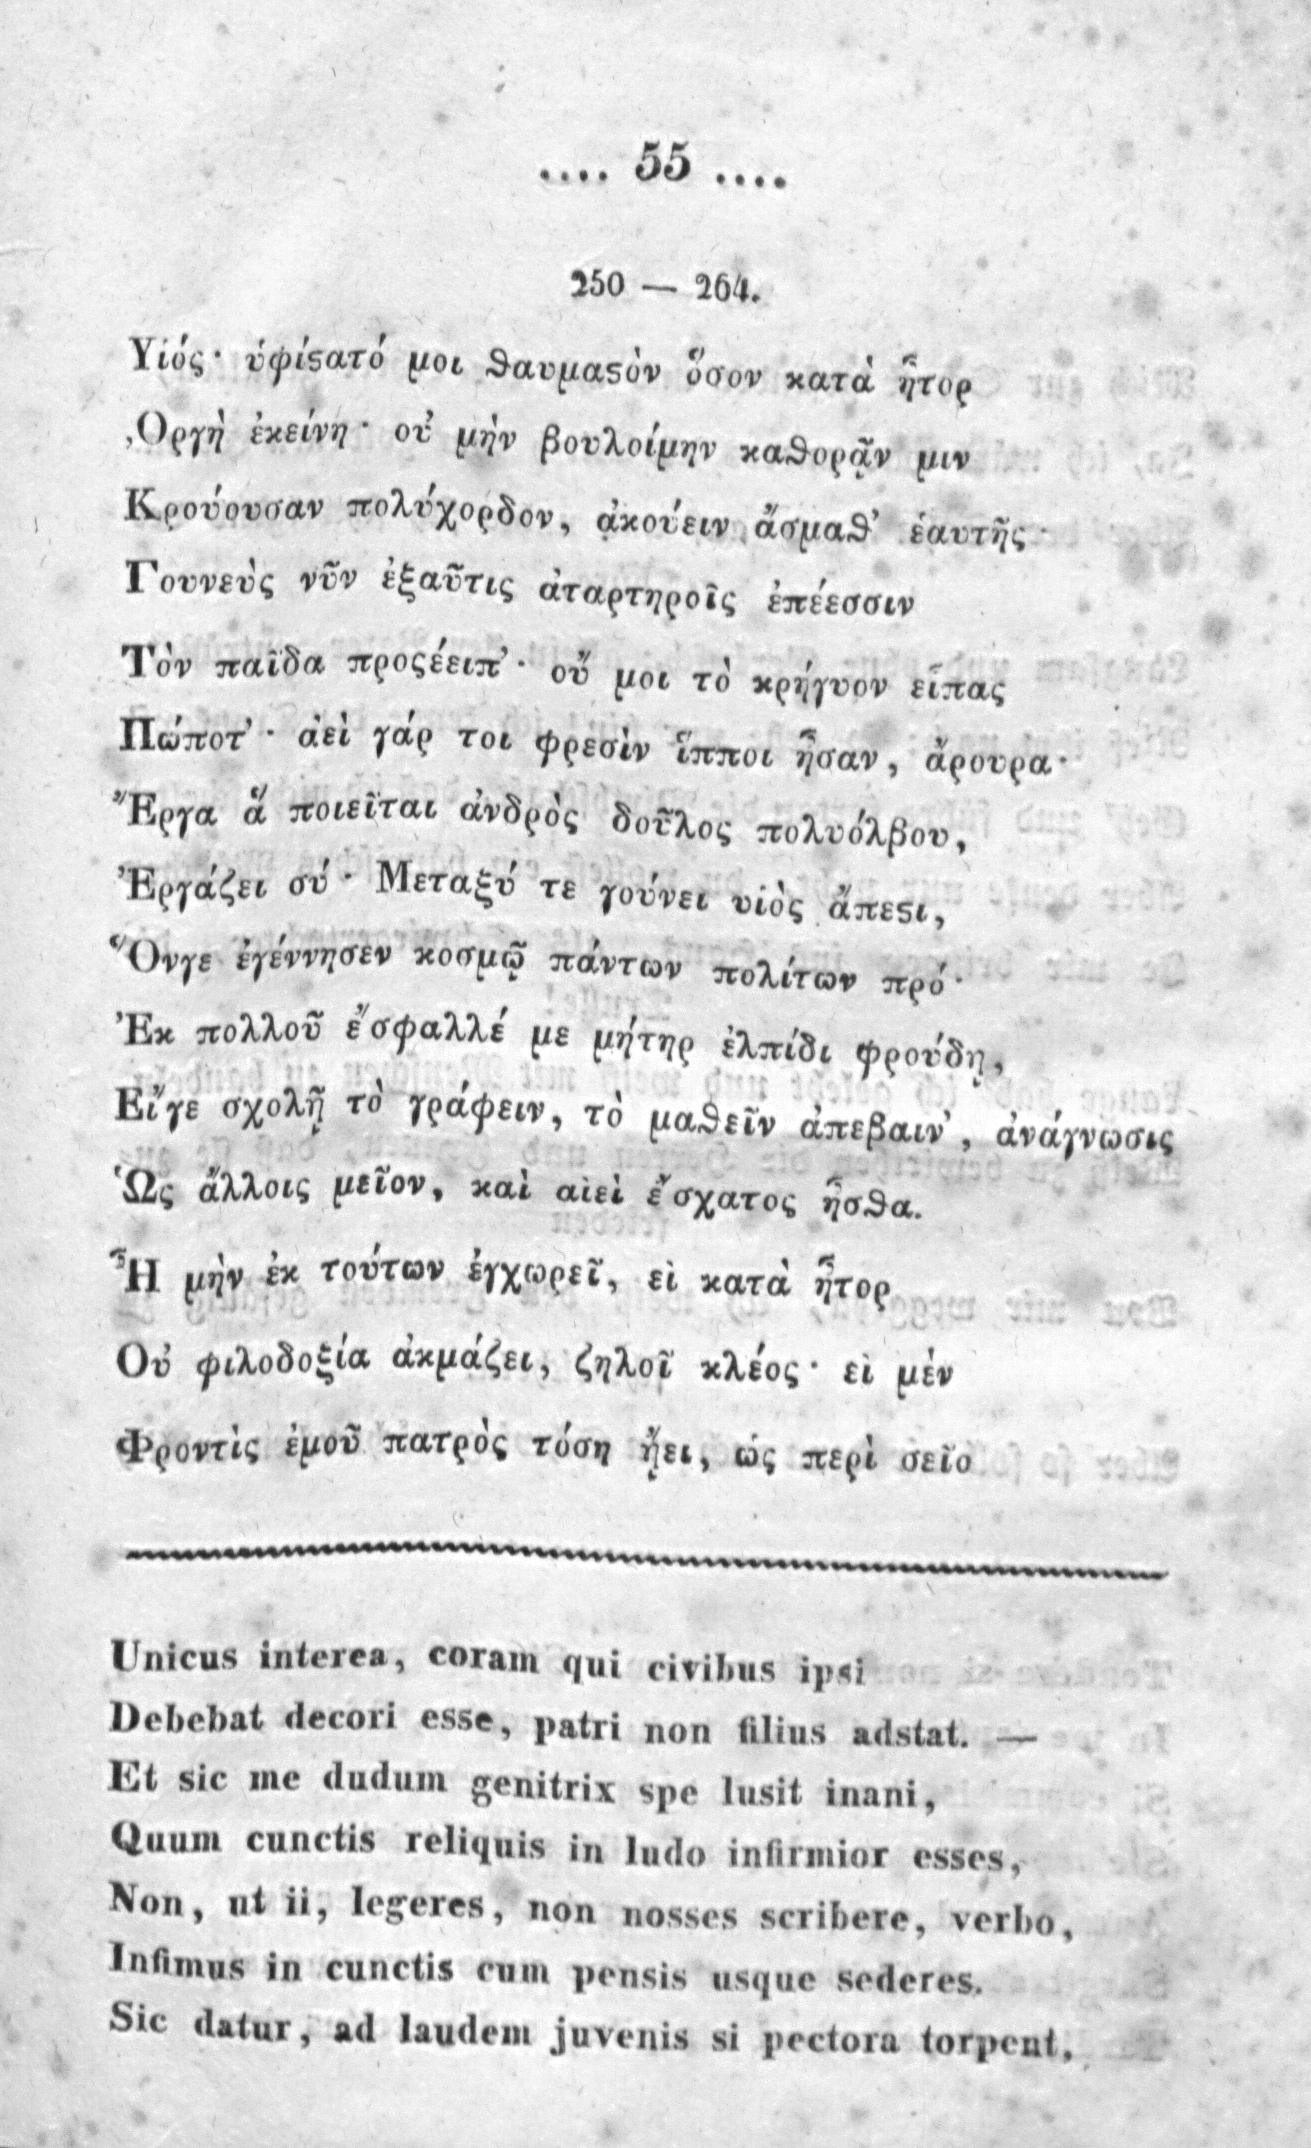 .... 55 ....
250 — 264.
Υἱός· ὑφίϛατό μοι ϑαυμαϛὸν ὅσον κατὰ ἦτορ
Ὀργὴ ἐκείνη· οὐ μὴν βουλοίμην καϑορᾷν μιν
Κρούουσαν πολύχορδον, ἀκούειν ᾄσμαϑ' ἑαυτῆς·
Γουνεὺς νῦν ἐξαῦτις ἀταρτηροῖς ἐπέεσσιν
Τὸν παῖδα προςέειπ'· οὔ μοι τὸ κρήγυον εἶπας
Πώποτ'· ἀεὶ γάρ τοι φρεσὶν ἵπποι ἦσαν, ἄρουρα·
Ἔργα ἃ ποιεῖται ἀνδρὸς δοῦλος πολυόλβου,
Ἐργάζει σύ· Μεταξύ τε γούνει υἱὸς ἄπεϛι,
Ὅνγε ἐγέννησεν κοσμῷ πάντων πολίτων πρό·
Ἐκ πολλοῦ ἔσφαλλέ με μήτηρ ἐλπίδι φρούδῃ,
Εἴγε σχολῇ τὸ γράφειν, τὸ μαϑεῖν ἀπεβαιν', ἀνάγνωσις
Ὡς ἄλλοις μεῖον, καὶ αἰεὶ ἔσχατος ἦσϑα.
Ἦ μὴν ἐκ τούτων ἐγχωρεῖ, εἰ κατὰ ἦτορ
Οὐ φιλοδοξία ἀκμάζει, ζηλοῖ κλέος· εἰ μὲν
Φροντὶς ἐμοῦ πατρὸς τόση ᾔει, ὡς περὶ σεῖο
Unicus interea, coram qui civibus ipsi
Debebat decori esse, patri non filius adstat. —
Et sic me dudum genitrix spe lusit inani,
Quum cunctis reliquis in ludo infirmior esses,
Non, ut ii, legeres, non nosses scribere, verbo,
Infimus in cunctis cum pensis usque sederes.
Sic datur, ad laudem juvenis si pectora torpent,